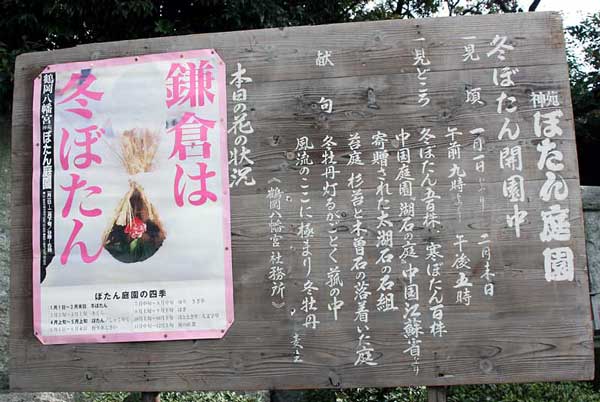 神苑 ぼたん庭園
冬ぼたん開園中
一見頃 一月一日〜二月末日
午前九時より 午後五時
一見どころ 冬ぼたん五百株 寒ぼたん百株
中国庭園 湖石の庭 中国江蘇省より
寄贈された太湖石の石組
苔庭 杉苔と木曽石の落着いた庭
献句 冬牡丹灯るがごとく菰の中
風流のここに極まり冬牡丹
《鶴岡八幡宮社務所》
本日の花の状況
鎌倉は
冬ぼたん
鶴岡八幡宮 神苑ぼたん庭園
ぼたん庭園の四季
1月1日〜2月末日 冬ぼたん